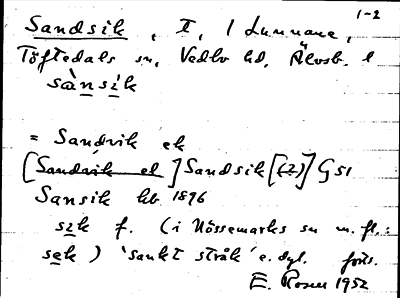 1-2
Sandsik, t, / Lunnane,
Töftedals sn, Vedbo hd, Älvsb. l
sànsik
= Sandvik ek
[Sandvik el] Sandsik [(2)] GS1
Sansik hb 1896
sik f. (i Nössemarks sn m. fl.:
sek) 'sankt stråk' e. dyl. forts.
E. Rosen 1952